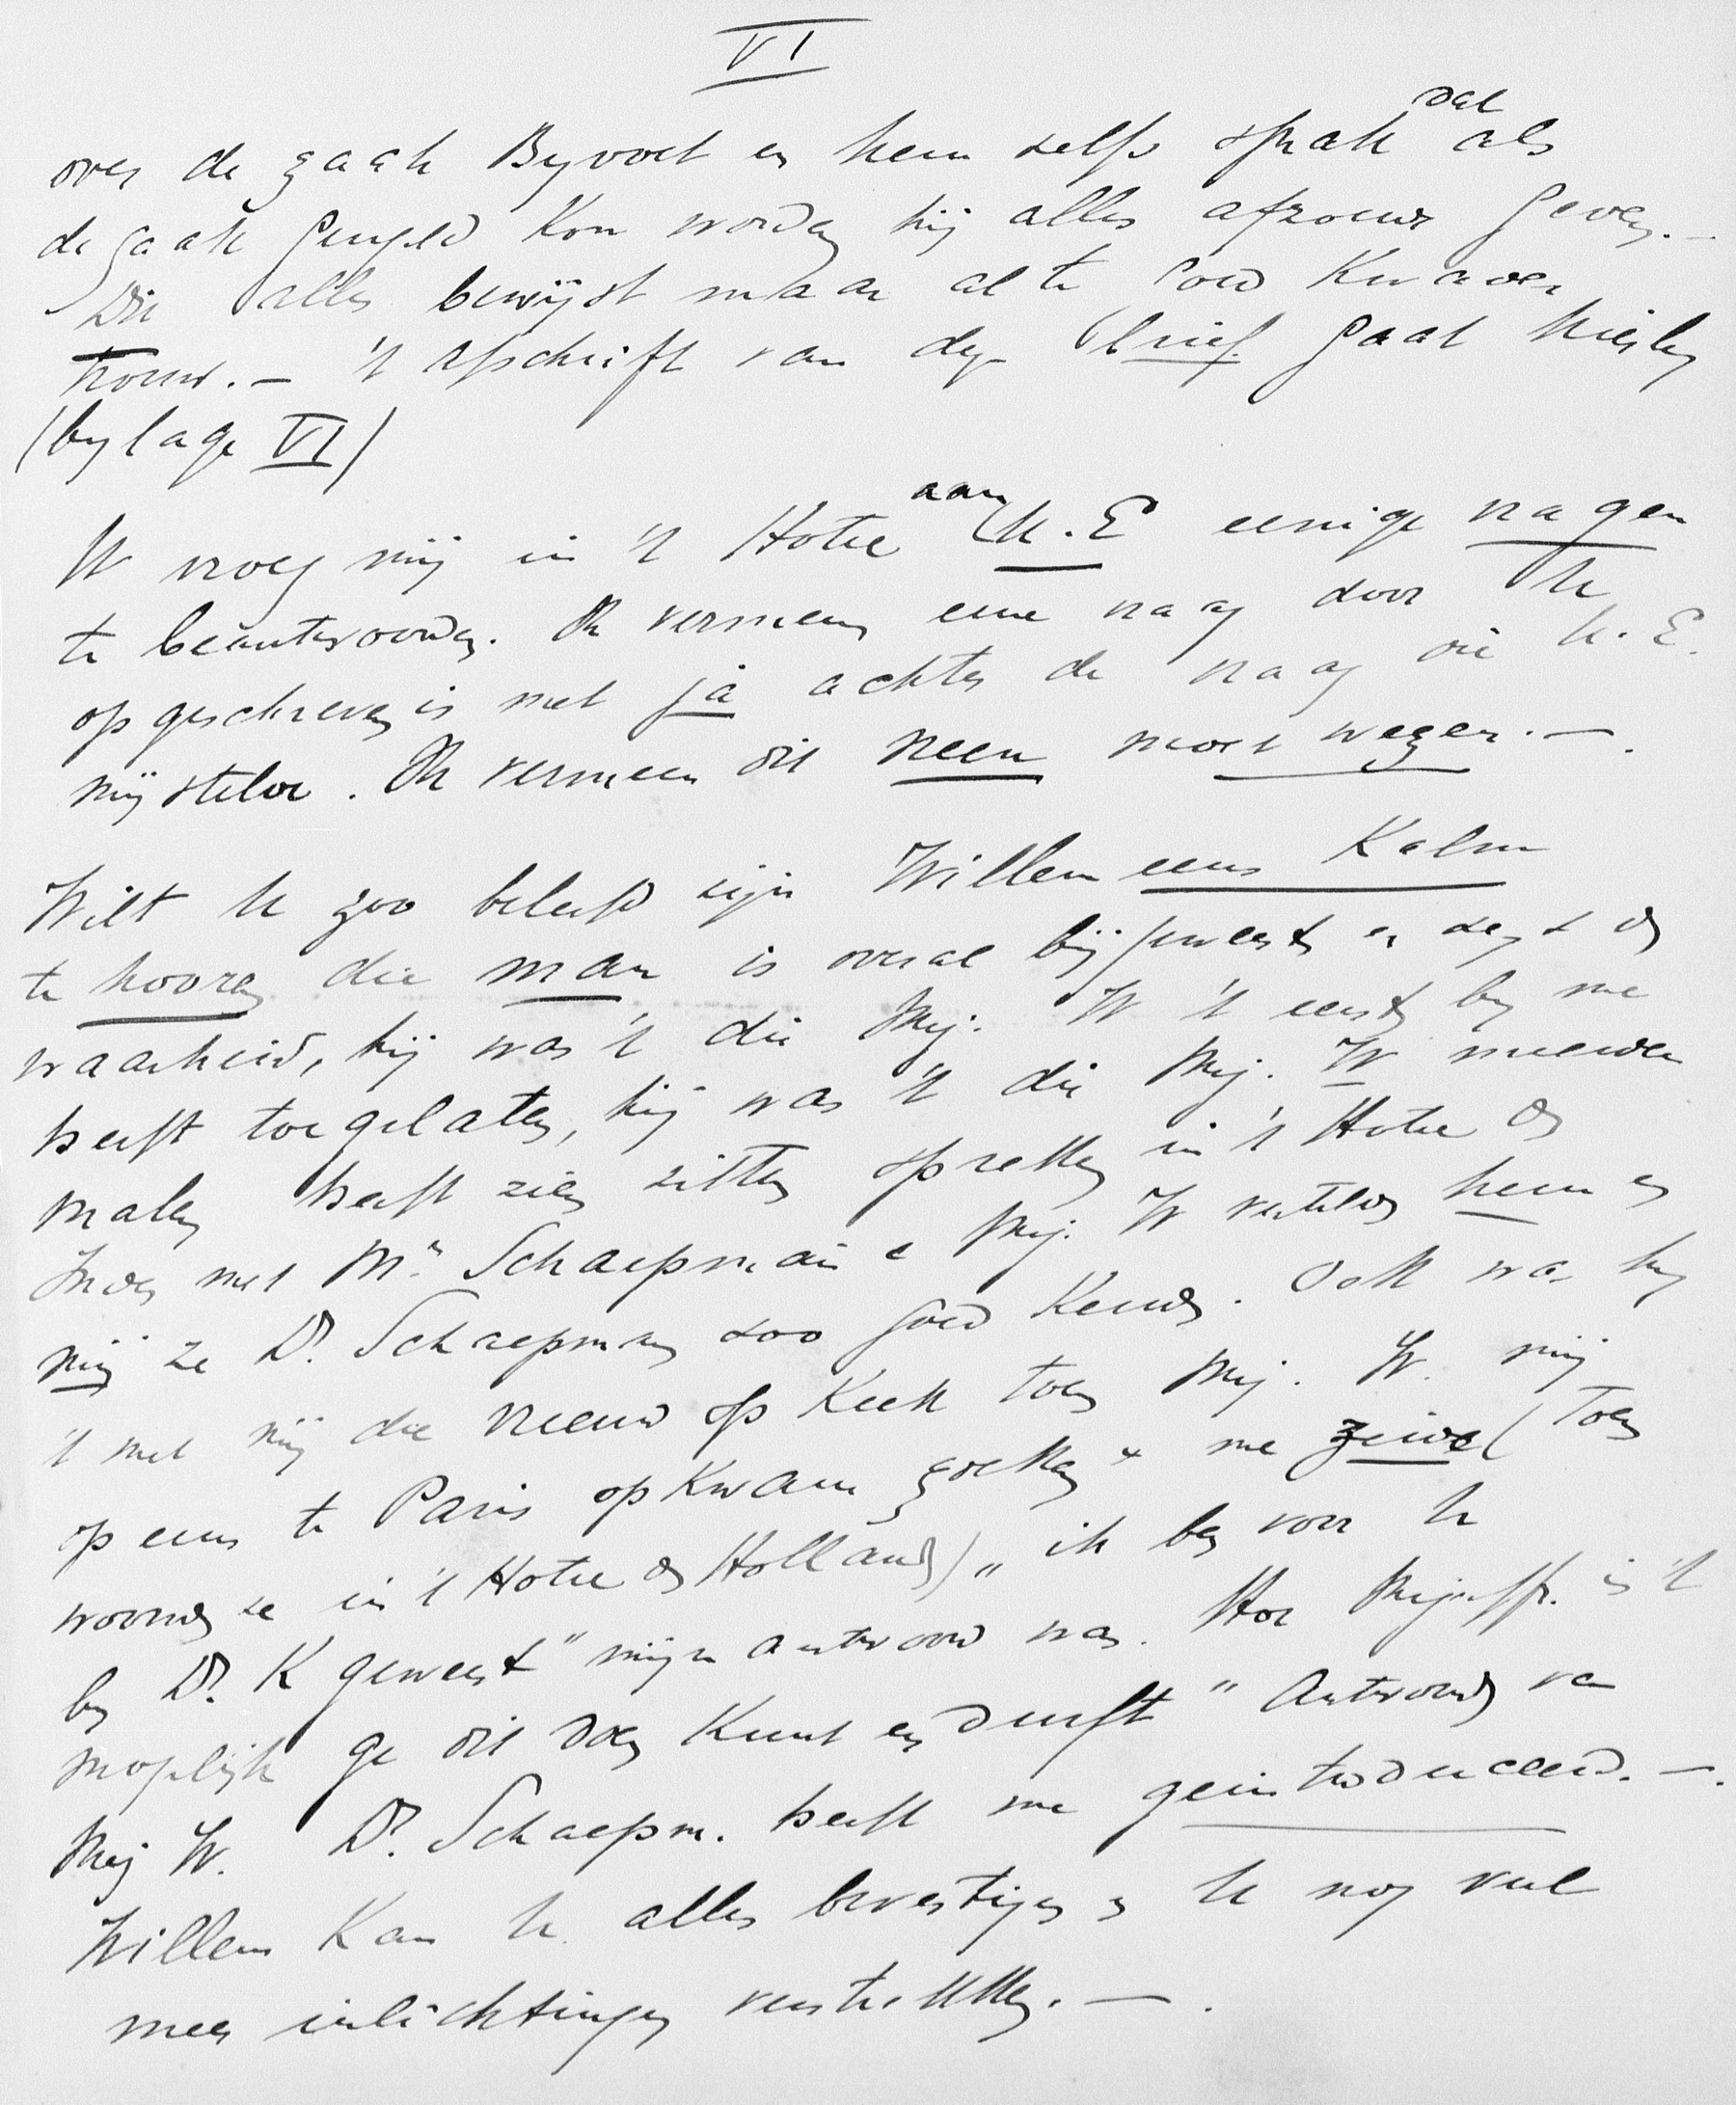 VI
over de zaak Byvoet en hem zelfs sprak dat als
de zaak geregeld kon worden hij alles afzoude geven. —
Dit alles bewijst maar al te goed kwader
trouw. — 't afschrift van dezen brief gaat hierby
(bylage VI)
U vroeg mij in 't Hotel aan U.E eenige vragen
te beantwoorden. Ik vermeen eene vraag door U
opgeschreven is met ja achter de vraag die U.E.
mij stelde. Ik vermeen dit neen moet wezen. —.
Wilt U zoo beleefd zijn Willem eens kalm
te hooren die man is overal bijgeweest en zegt de
waarheid, hij was 't die Mej. W 't eerste by me
heeft toegelaten, hij was 't die Mej. W meerdere
malen heeft zien zitten spreken in 't Hotel des
Indes met Mr. Schaepman e Mej. W vertelde hem en
mij ze Dr. Schaepman zoo goed kende. Ook was hij
't met mij die vreemd op keek toen Mej. W. mij
op eens te Paris opkwam zoeken & me zeide (toen
woonde ze in 't Hotel de Hollande) „ik ben voor U
by Dr. K geweest" mijn antwoord was. Hoe Mejuffr. is 't
mogelijk ge dit doen kunt en durft" Antwoord van
Mej W. Dr. Schaepm. heeft me geintroduceerd. —.
Willem kan U alles bevestigen en U nog veel
meer inlichtingen verstrekken. —.